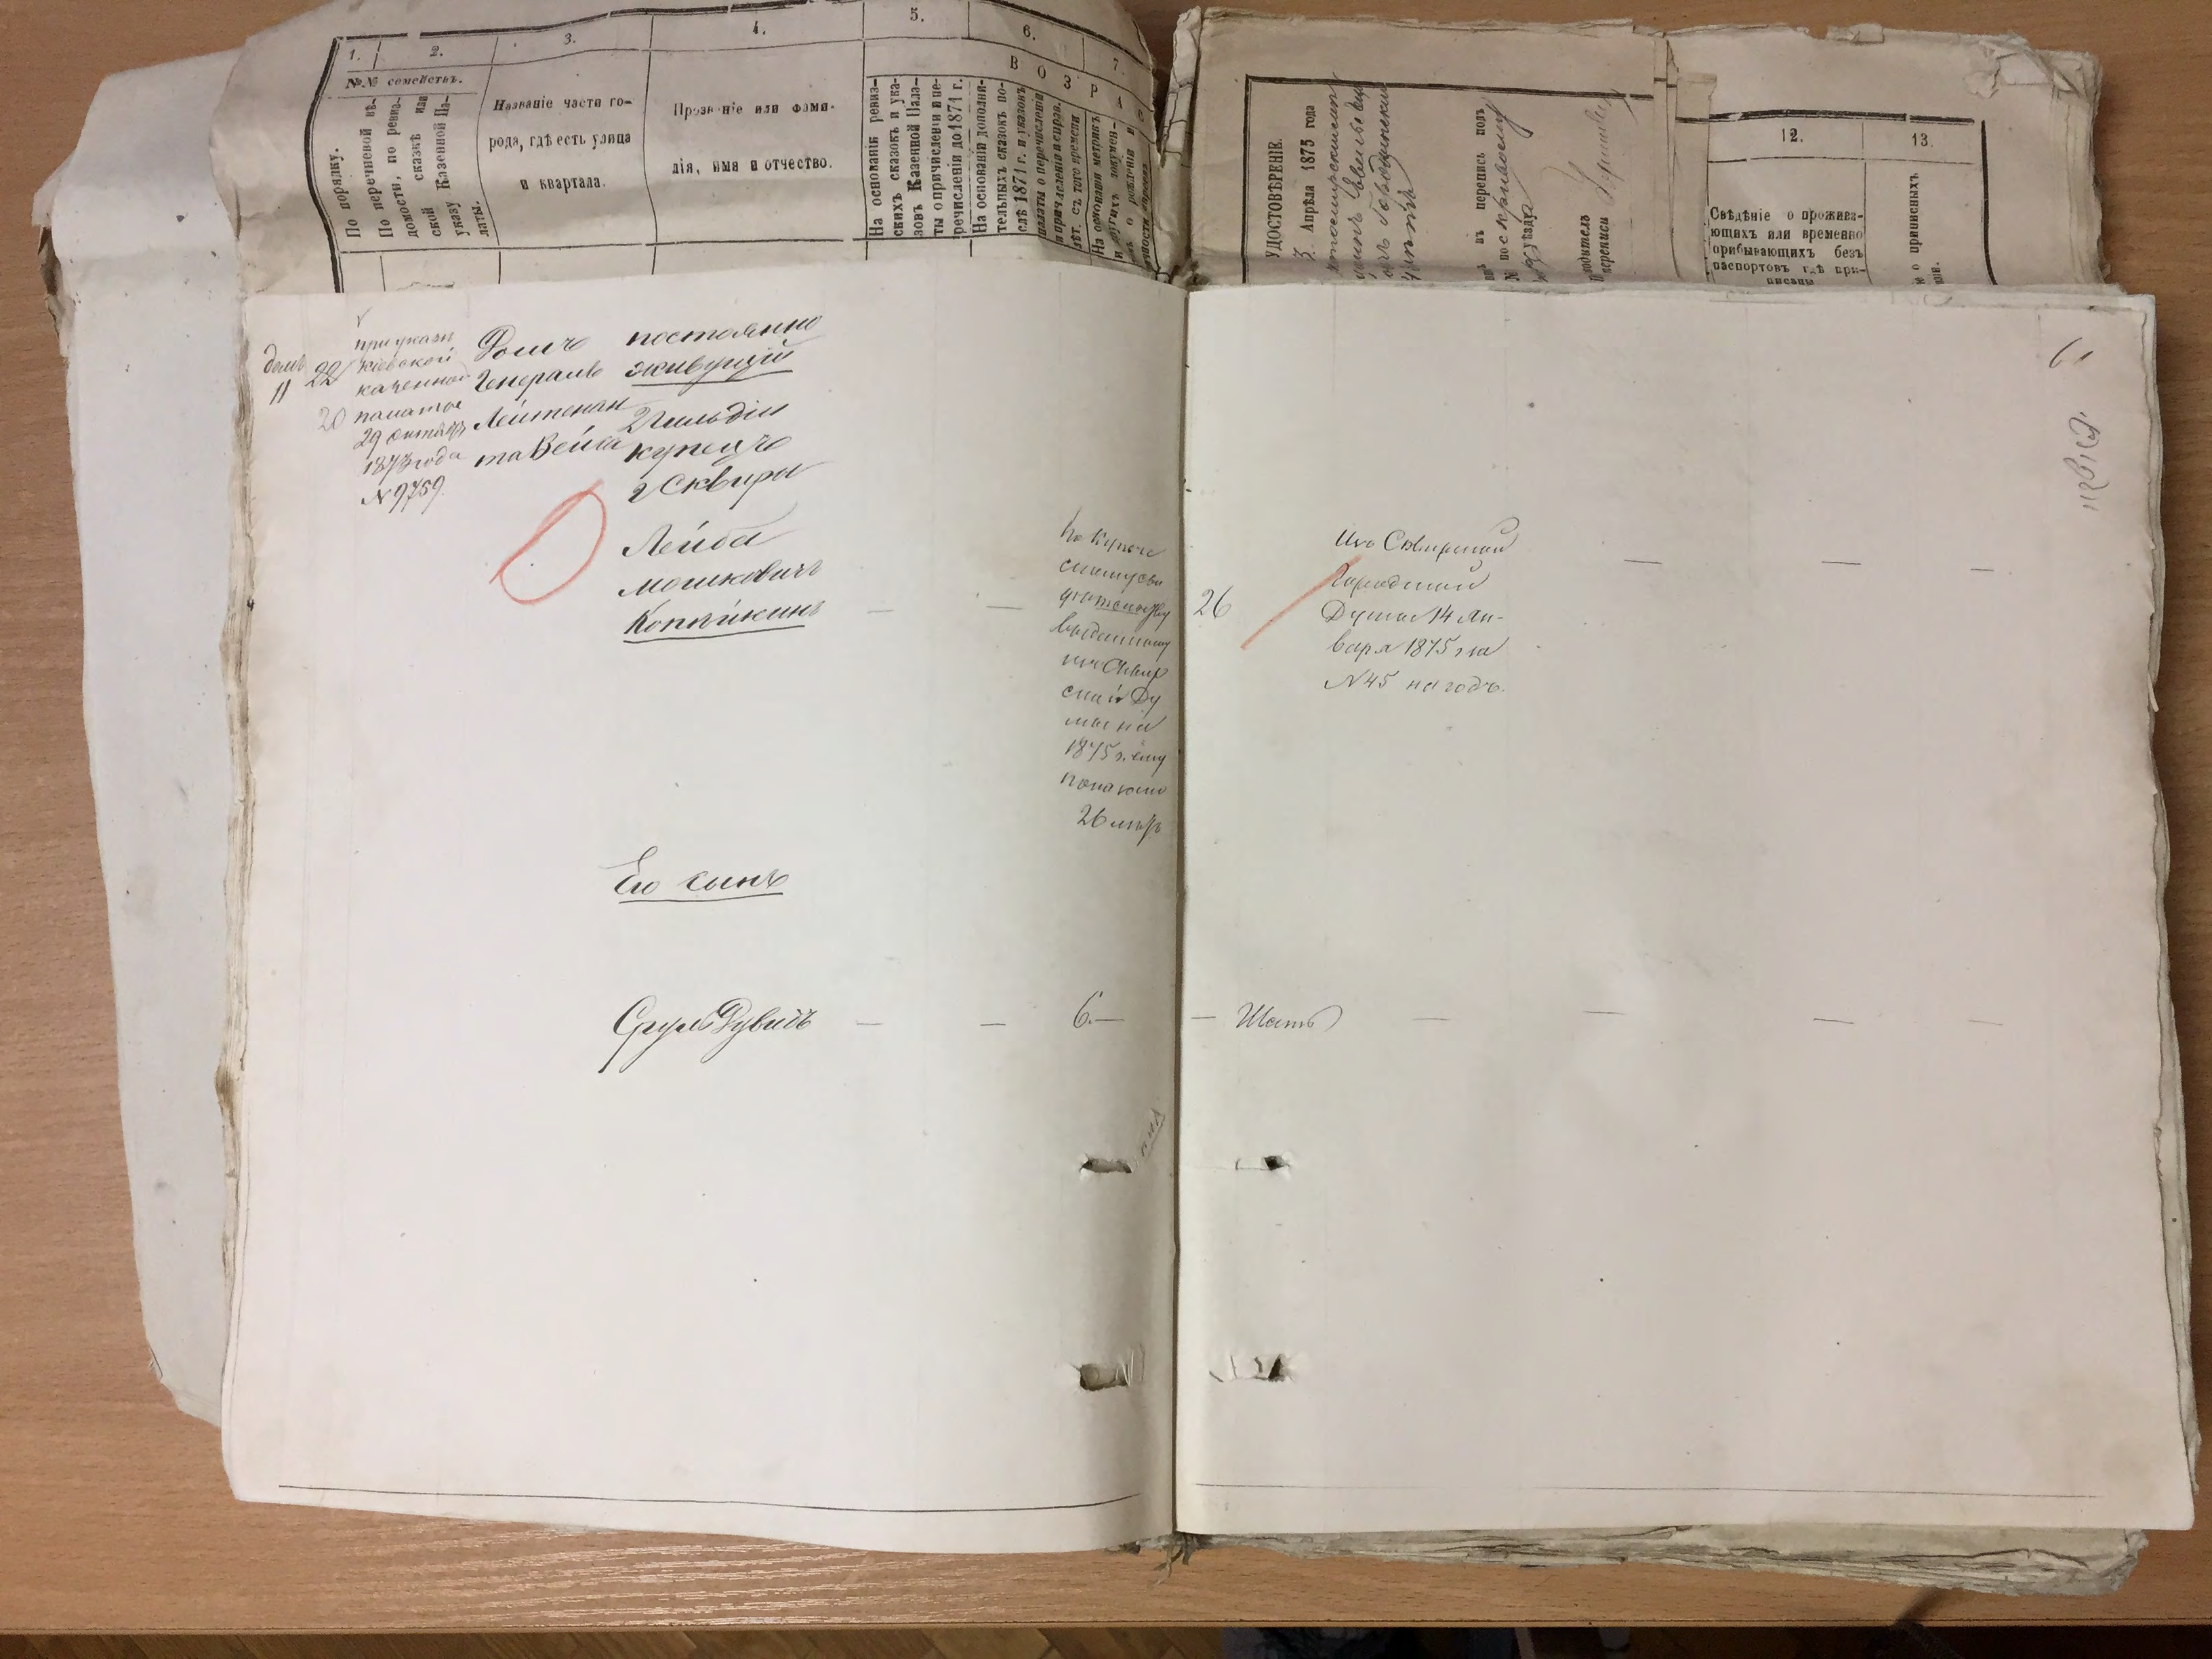 1.
2.
3.
4.
5.
6.
7.
№№ семействъ.
В О З Р А С
По порядку.
По перечневой вѣ-
домости, по ревиз-
ской сказкѣ или
указу Казенной Па-
латы.
Названіе части го-
рода, гдѣ есть улица
и квартала.
Прозваніе или фами-
лія, имя и отчество.
На основаніи ревиз-
скихъ сказокъ и ука-
зовъ Казенной Пала-
ты о причисленіи и пе-
речисленіи до 1871 г.
На основаніи дополни-
тельныхъ сказокъ по-
слѣ 1871 г. и указовъ
палаты о перечисленіи
и причисленіи и справ.
лѣт. съ того времени
На основаніи метрик.
и другихъ докумен-
УДОСТОВѢРЕНІЕ.
3. Апрѣля 1875 года
въ перепись подъ
переписи
12.
13.
Свѣдѣніе о прожива-
ющихъ или временно
прибывающихъ безъ
паспортовъ гдѣ при-
писаны
о приписныхъ
домъ
11
22
20
при указѣ
Кіевской
казенной
палаты
29 октября
1873 года
N 9759.
Домъ
Генералъ
Лейтенан
та Вейса
постоянно
живущій
2 гильдіи
купецъ
г Сквиры
Лейба
Мошковичъ
Копѣйкинъ
— —
По купече
скому сви
дѣтельству
выданному
изъ Сквир
ской Ду
мы на
1875 г. ему
показано
26 лѣтъ
26
Изъ Сквирской
Городской
Думы 14 Ян-
варя 1875 г за
N 45 на годъ.
— — —
Его сынъ
Сруль Дувидъ — — 6. — — Шесть — — — —
61